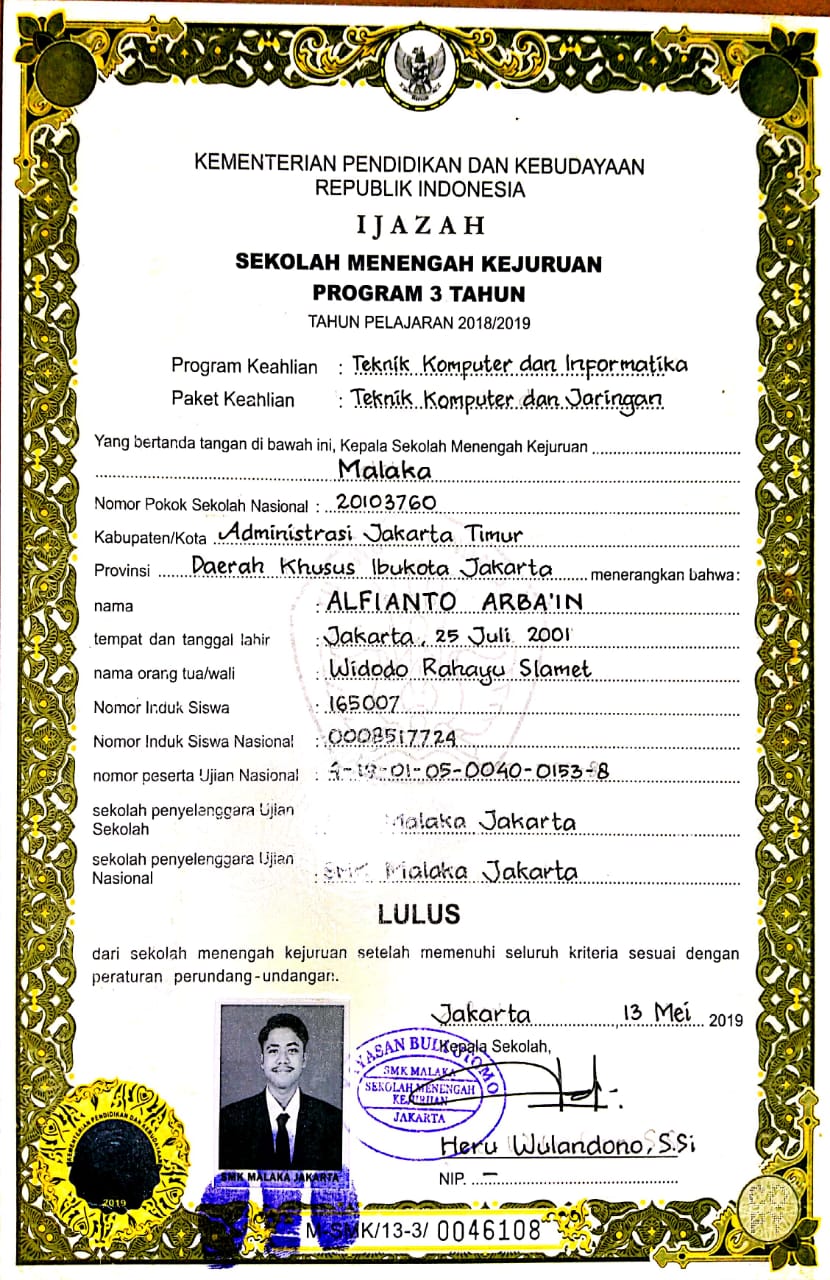 KEMENTERIAN PENDIDIKAN DAN KEBUDAYAAN
REPUBLIK INDONESIA
IJAZAH
SEKOLAH MENENGAH KEJURUAN
PROGRAM 3 TAHUN
TAHUN PELAJARAN 2018/2019
Program Keahlian : Teknik Komputer dan Informatika
Paket Keahlian : Teknik Komputer dan Jaringan
Yang bertanda tangan di bawah ini, Kepala Sekolah Menengah Kejuruan
Malaka
Nomor Pokok Sekolah Nasional : 20103760
Kabupaten/Kota Administrasi Jakarta Timur
Provinsi Daerah Khusus Ibukota Jakarta menerangkan bahwa:
nama : ALFIANTO ARBA'IN
tempat dan tanggal lahir : Jakarta, 25 Juli 2001
nama orang tua/wali : Widodo Rahayu Slamet
Nomor Induk Siswa : 165007
Nomor Induk Siswa Nasional : 0008517724
nomor peserta Ujian Nasional : -19-01-05-0040-0153-8
sekolah penyelenggara Ujian
Sekolah : Malaka Jakarta
sekolah penyelenggara Ujian
Nasional : SMK Malaka Jakarta
LULUS
dari sekolah menengah kejuruan setelah memenuhi seluruh kriteria sesuai dengan
peraturan perundang-undangan.
Jakarta, 13 Mei 2019
Kepala Sekolah,
YAYASAN BUDI UTOMO
SMK MALAKA
SEKOLAH MENENGAH
KEJURUAN
JAKARTA
Heru Wulandono, S.Si
NIP. –
SMK MALAKA JAKARTA
KEMENTERIAN PENDIDIKAN DAN KEBUDAYAAN
2019
M-SMK/13-3/ 0046108